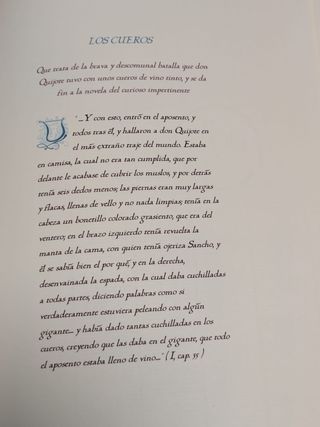 LOS CUEROS
Que trata de la brava y descomunal batalla que don
Quijote tuvo con unos cueros de vino tinto, y se da
fin a la novela del curioso impertinente
"...Y con esto, entró en el aposento, y
todos tras él, y hallaron a don Quijote en
el más extraño traje del mundo. Estaba
en camisa, la cual no era tan cumplida, que por
delante le acabase de cubrir los muslos, y por detrás
tenía seis dedos menos; las piernas eran muy largas
y flacas, llenas de vello y no nada limpias; tenía en la
cabeza un bonetillo colorado grasiento, que era del
ventero; en el brazo izquierdo tenía revuelta la
manta de la cama, con quien tenía ojeriza Sancho, y
él se sabía bien el por qué, y en la derecha,
desenvainada la espada, con la cual daba cuchilladas
a todas partes, diciendo palabras como si
verdaderamente estuviera peleando con algún
gigante... y había dado tantas cuchilladas en los
cueros, creyendo que las daba en el gigante, que todo
el aposento estaba lleno de vino..." ( I, cap. 35 )